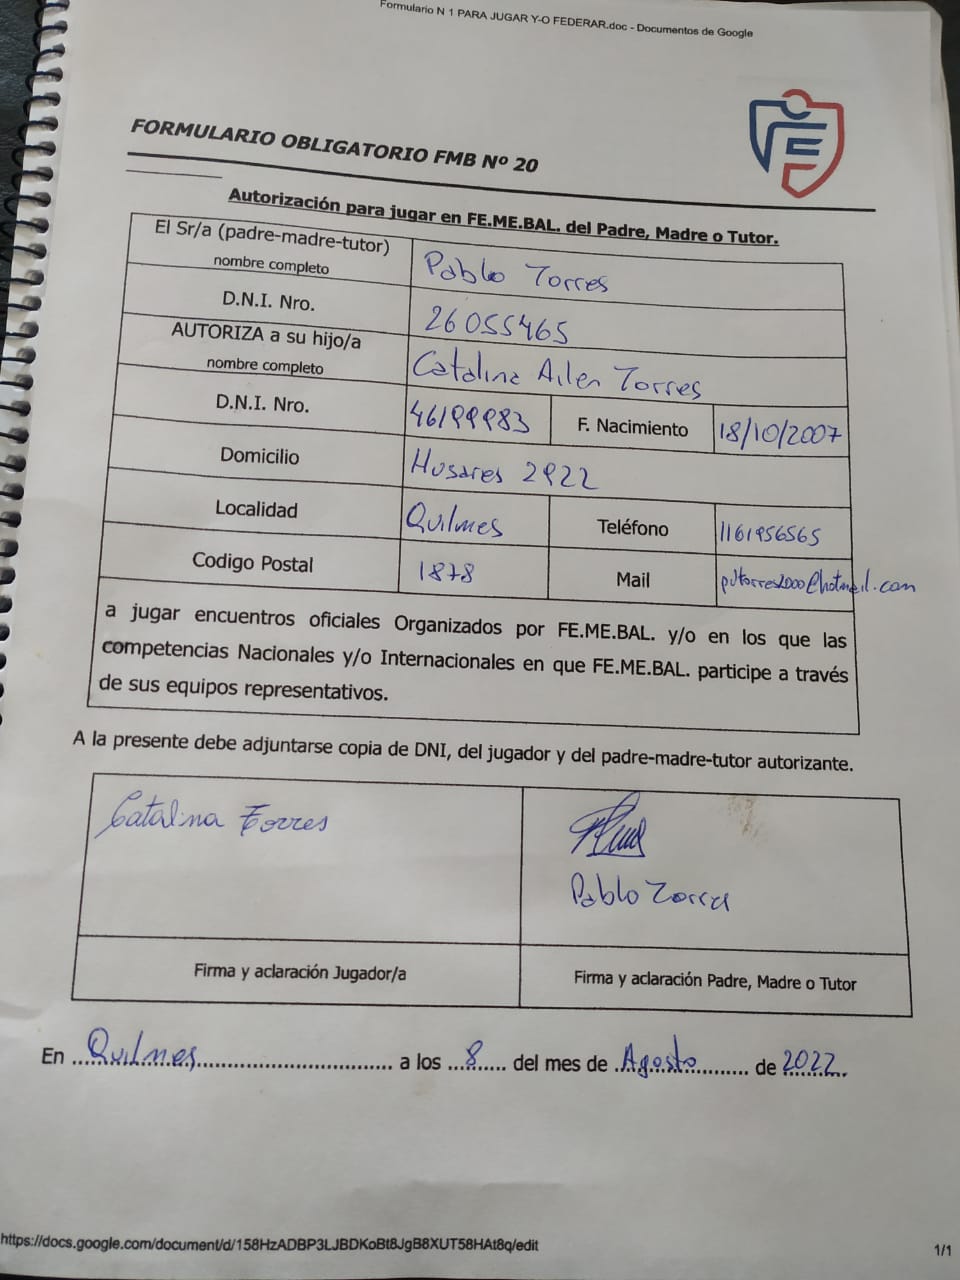 Formulario N 1 PARA JUGAR Y-O FEDERAR.doc - Documentos de Google
FORMULARIO OBLIGATORIO FMB Nº 20
Autorización para jugar en FE.ME.BAL. del Padre, Madre o Tutor.
El Sr/a (padre-madre-tutor) nombre completo Pablo Torres
D.N.I. Nro. 26055465
AUTORIZA a su hijo/a nombre completo Catalina Ailen Torres
D.N.I. Nro. 46199983 F. Nacimiento 18/10/2007
Domicilio Husares 2922
Localidad Quilmes Teléfono 1161956565
Codigo Postal 1878 Mail pdtorres2000@hotmail.com
a jugar encuentros oficiales Organizados por FE.ME.BAL. y/o en los que las
competencias Nacionales y/o Internacionales en que FE.ME.BAL. participe a través
de sus equipos representativos.
A la presente debe adjuntarse copia de DNI, del jugador y del padre-madre-tutor autorizante.
Catalina Torres
Pablo Torres
Firma y aclaración Jugador/a Firma y aclaración Padre, Madre o Tutor
En Quilmes a los 8 del mes de Agosto de 2022
https://docs.google.com/document/d/158HzADBP3LJBDKoBt8JgB8XUT58HAt8q/edit 1/1